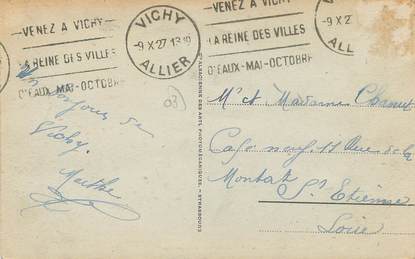 VENEZ A VICHY
LA REINE DES VILLES
D'EAUX-MAI-OCTOBRE
VICHY
-9 X 27 13
ALLIER
VENEZ A VICHY
LA REINE DES VILLES
D'EAUX-MAI-OCTOBRE
-9 X 2
ALL
03
Bonjour de
Vichy.
Marthe
Sté ALSACIENNE DES ARTS PHOTOMÉCANIQUES - STRASBOURG
Mr et Madame
Café neuf 11 Rue de la
Montat St Etienne
Loire